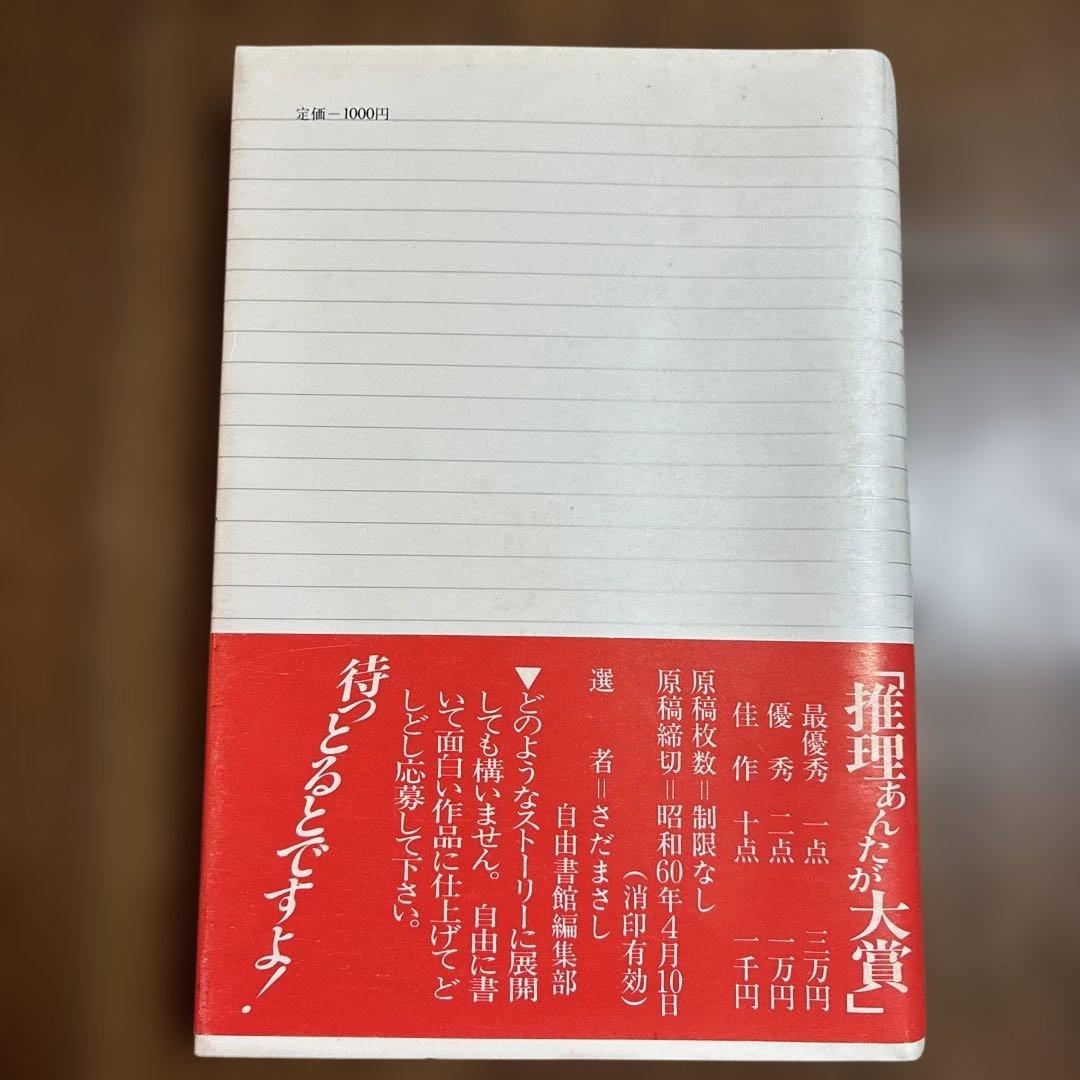 定価－1000円
「推理あんたが大賞」
最優秀　一点　三万円
優　秀　二点　一万円
佳　作　十点　一千円
原稿枚数＝制限なし
原稿締切＝昭和60年4月10日
（消印有効）
選　者＝さだまさし
自由書館編集部
▼どのようなストーリーに展開
しても構いません。自由に書
いて面白い作品に仕上げてど
しどし応募して下さい。
待っとるとですよ！